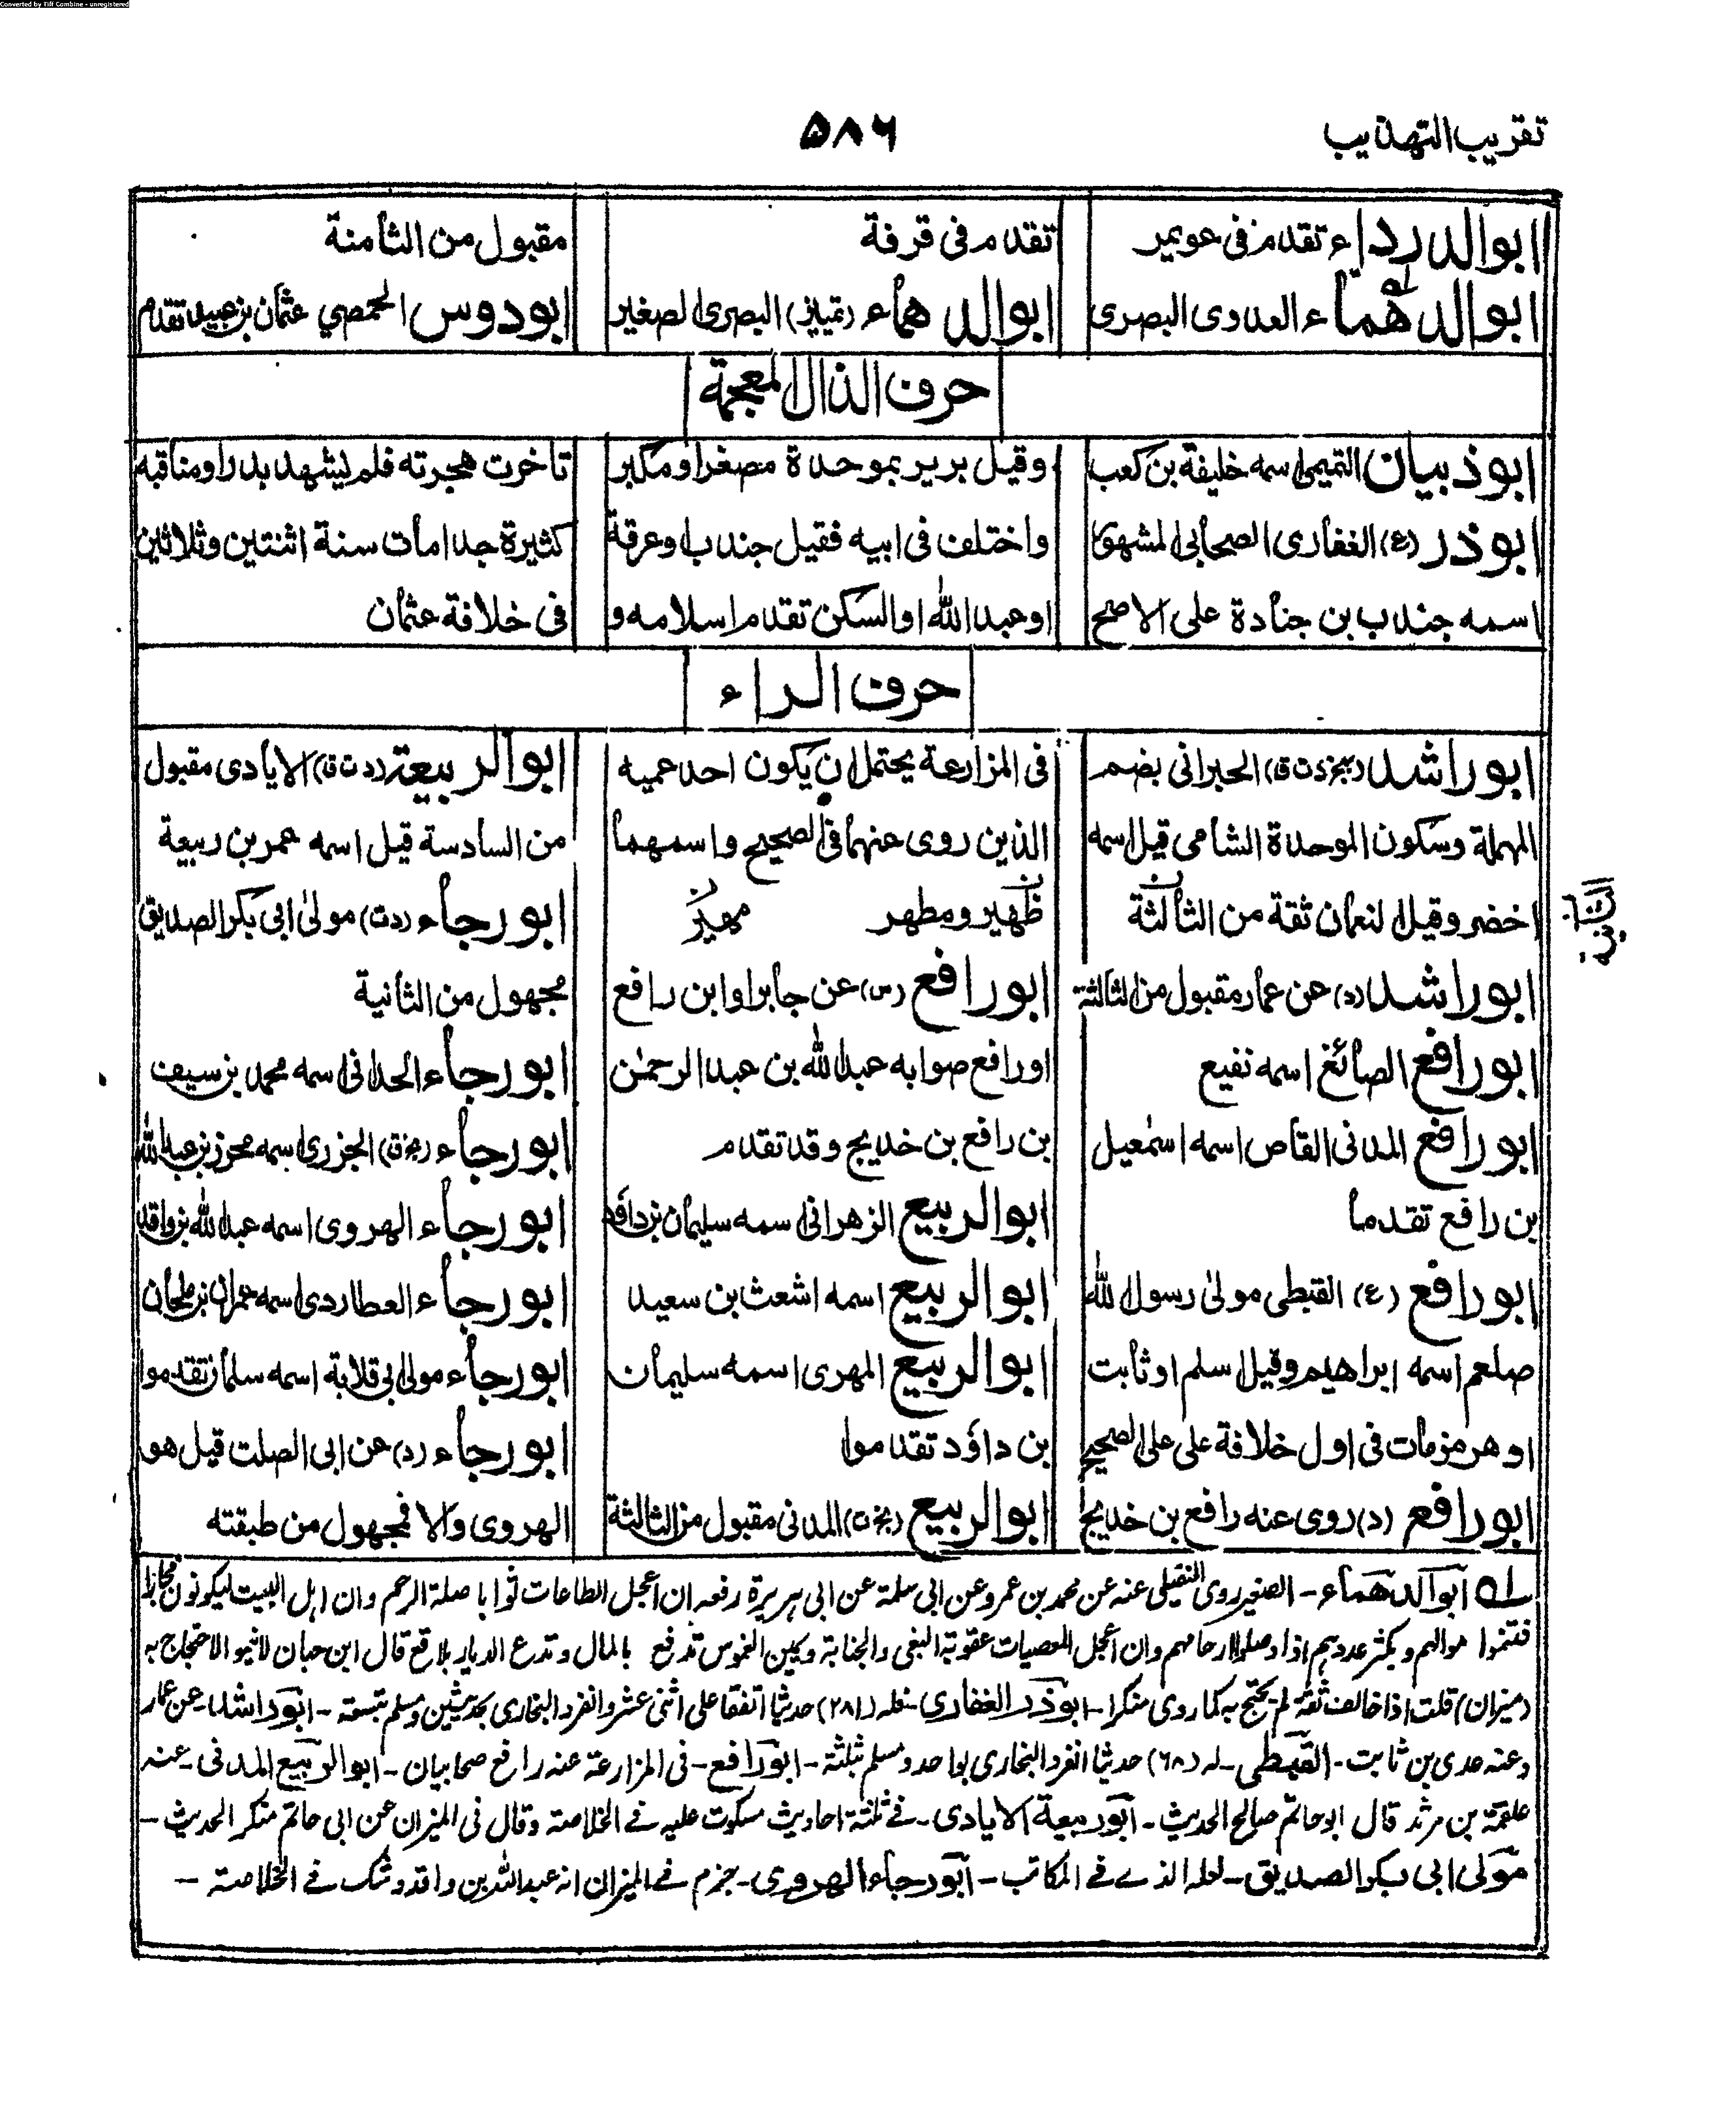 Converted by Tiff Combine - unregistered
تقريب التهذيب
۵۸۶
ابوالدرداء تقدم فى عويمر
ابوالدهماء العدوى البصرى
تقدم فى قرفة
ابوالدهماء (تمييز) البصرى الصغير
مقبول من الثامنة
ابودوس الحمصي عثمان بن عبيد تقدم
حرف الذال المعجمة
ابوذبيان التميمى اسمه خليفة بن كعب
ابوذر (ع) الغفارى الصحابى المشهور
اسمه جندب بن جنادة على الاصح
وقيل برير بموحدة مصغرا ومكبر
واختلف فى ابيه فقيل جندب او عرقة
او عبدالله او السكن تقدم اسلامه و
تاخرت هجرته فلم يشهد بدرا ومناقبه
كثيرة جدا مات سنة اثنتين وثلاثين
فى خلافة عثمان
حرف الراء
ابوراشد (بخ د ت ق) الحبرانى بضم
المهملة وسكون الموحدة الشامى قيل اسمه
اخضر وقيل النعمان ثقة من الثالثة
ابوراشد (د) عن عمار مقبول من الثالثة
ابورافع الصائغ اسمه نفيع
ابورافع المدنى القاص اسمه اسمٰعيل
بن رافع تقدما
ابورافع (ع) القبطى مولىٰ رسول الله
صلعم اسمه ابراهيم وقيل اسلم او ثابت
او هرمز مات فى اول خلافة على على الصحيح
ابورافع (د) روى عنه رافع بن خديج
فى المزارعة يحتمل ان يكون احد عميه
الذين روى عنهما فى الصحيح واسمهما
ظهير ومطهر مهير
ابورافع (س) عن جابر او ابن رافع
او رافع صوابه عبدالله بن عبدالرحمٰن
بن رافع بن خديج وقد تقدم
ابوالربيع الزهرانى اسمه سليمان بن داؤد
ابوالربيع اسمه اشعث بن سعيد
ابوالربيع المهرى اسمه سليمان
بن داؤد تقدموا
ابوالربيع (بخ ت) المدنى مقبول من الثالثة
ابوالربيعة (د ت ق) الايادى مقبول
من السادسة قيل اسمه عمر بن ربيعة
ابورجاء (د ت) مولىٰ ابى بكر الصديق
مجهول من الثانية
ابورجاء الحدانى اسمه محمد بن سيف
ابورجاء (بخ ق) الجزرى اسمه محرز بن عبدالله
ابورجاء الهروى اسمه عبدالله بن واقد
ابورجاء العطاردى اسمه عمران بن ملحان
ابورجاء مولى ابى قلابة اسمه سلمان تقدموا
ابورجاء (د) عن ابى الصلت قيل هو
الهروى والا فمجهول من طبقته
له ابوالدهماء - الصغير روى النفيلى عنه عن محمد بن عمرو عن ابى سلمة عن ابى هريرة رفعه ان اعجل الطاعات ثوابا صلة الرحم وان اهل البيت ليكونون
اموالهم ويكثر عددهم اذا وصلوا ارحامهم وان اعجل المعصيات عقوبة البغى والخيانة ويمين الغموس تذهب بالمال وتدع الديار بلاقع قال ابن حبان لا يجوز الاحتجاج به
(ميزان) قلت اذا خالف ثقة لم يحتج به كما روى منكرا - ابوذر الغفارى - فله (۲۸۱) حديثا اتفقا على اثنى عشر وانفرد البخارى بحديثين ومسلم بتسعة - ابوراشد - عن عمار
وعنه عدى بن ثابت - القبطى - له (۶۸) حديثا انفرد البخارى بواحد ومسلم بثلثة - ابورافع - فى المزارعة عنه رافع صحابيان - ابوالربيع المدنى - عنه
علقمة بن مرثد قال ابوحاتم صالح الحديث - ابوربيعة الايادى - فے ثلثة احاديث مسكوت عليه فے الخلاصة وقال فى الميزان عن ابى حاتم منكر الحديث -
مولى ابى بكر الصديق - لعله الذے فے المكاتب - ابورجاء الهروى - جزم فے الميزان انه عبدالله بن واقد وشك فے الخلاصة -